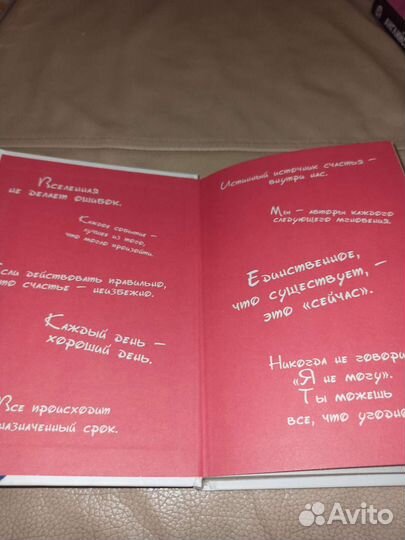 Вселенная
не делает ошибок.
Каждое событие –
лучшее из того,
что могло произойти.
Если действовать правильно,
то счастье – неизбежно.
Каждый день –
хороший день.
Все происходит
назначенный срок.
Истинный источник счастья –
внутри нас.
Мы – авторы каждого
следующего мгновения.
Единственное,
что существует, –
это «сейчас».
Никогда не говори
«Я не могу».
Ты можешь
все, что угодно
Avito